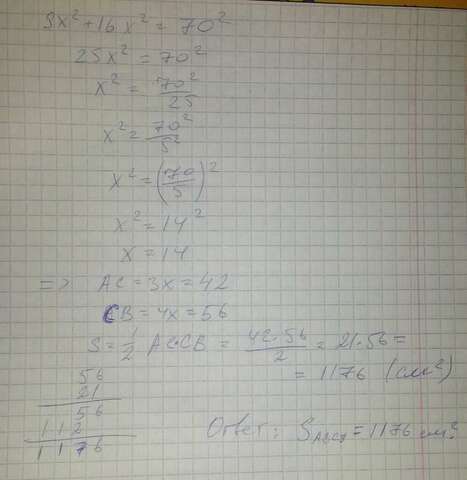 9x² + 16x² = 70²
25x² = 70²
x² = 70²/25
x² = 70²/5²
x² = (70/5)²
x² = 14²
x = 14
=> AC = 3x = 42
CB = 4x = 56
S = 1/2 AC·CB = 42·56/2 = 21·56 =
= 1176 (см²)
56
21
56
112
1176
Ответ: S = 1176 см².